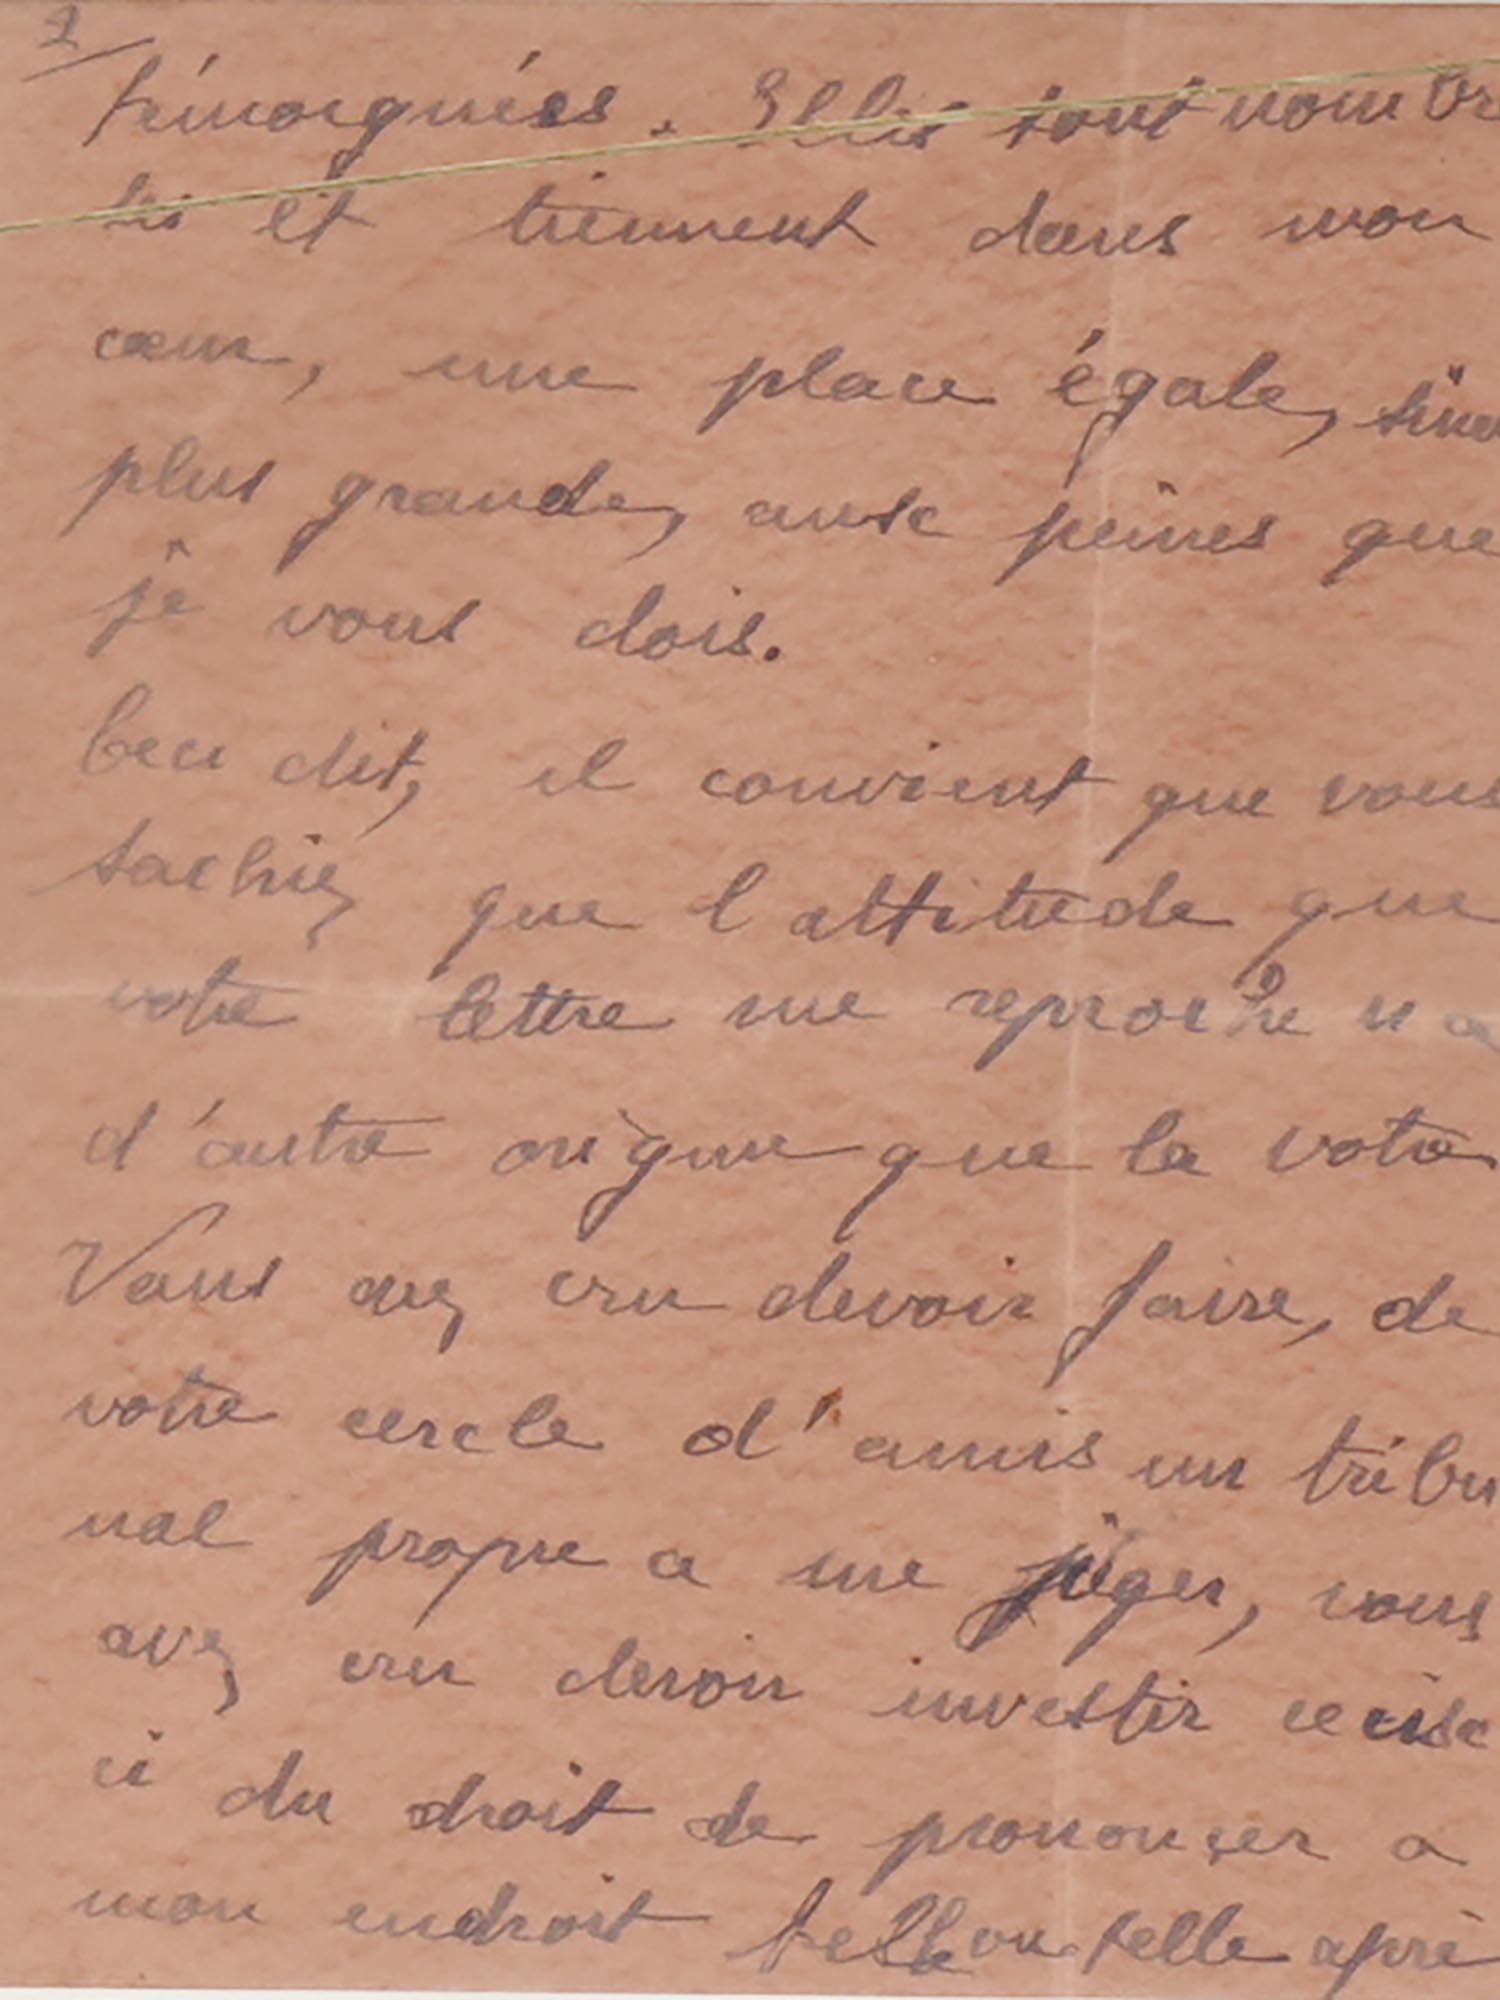 2/
témoignées. Elles sont nombr
ses et tiennent dans mon
cœur, une place égale, sinon
plus grande, aux peines que
je vous dois.
Ceci dit, il convient que vous
sachiez que l'attitude que
votre lettre me reproche n'a
d'autre origine que la votre
Vous avez cru devoir faire, de
votre cercle d'amis un tribu
nal propre a me juger, vous
avez cru devoir investir ceux
ci du droit de prononcer a
mon endroit telle ou telle apré